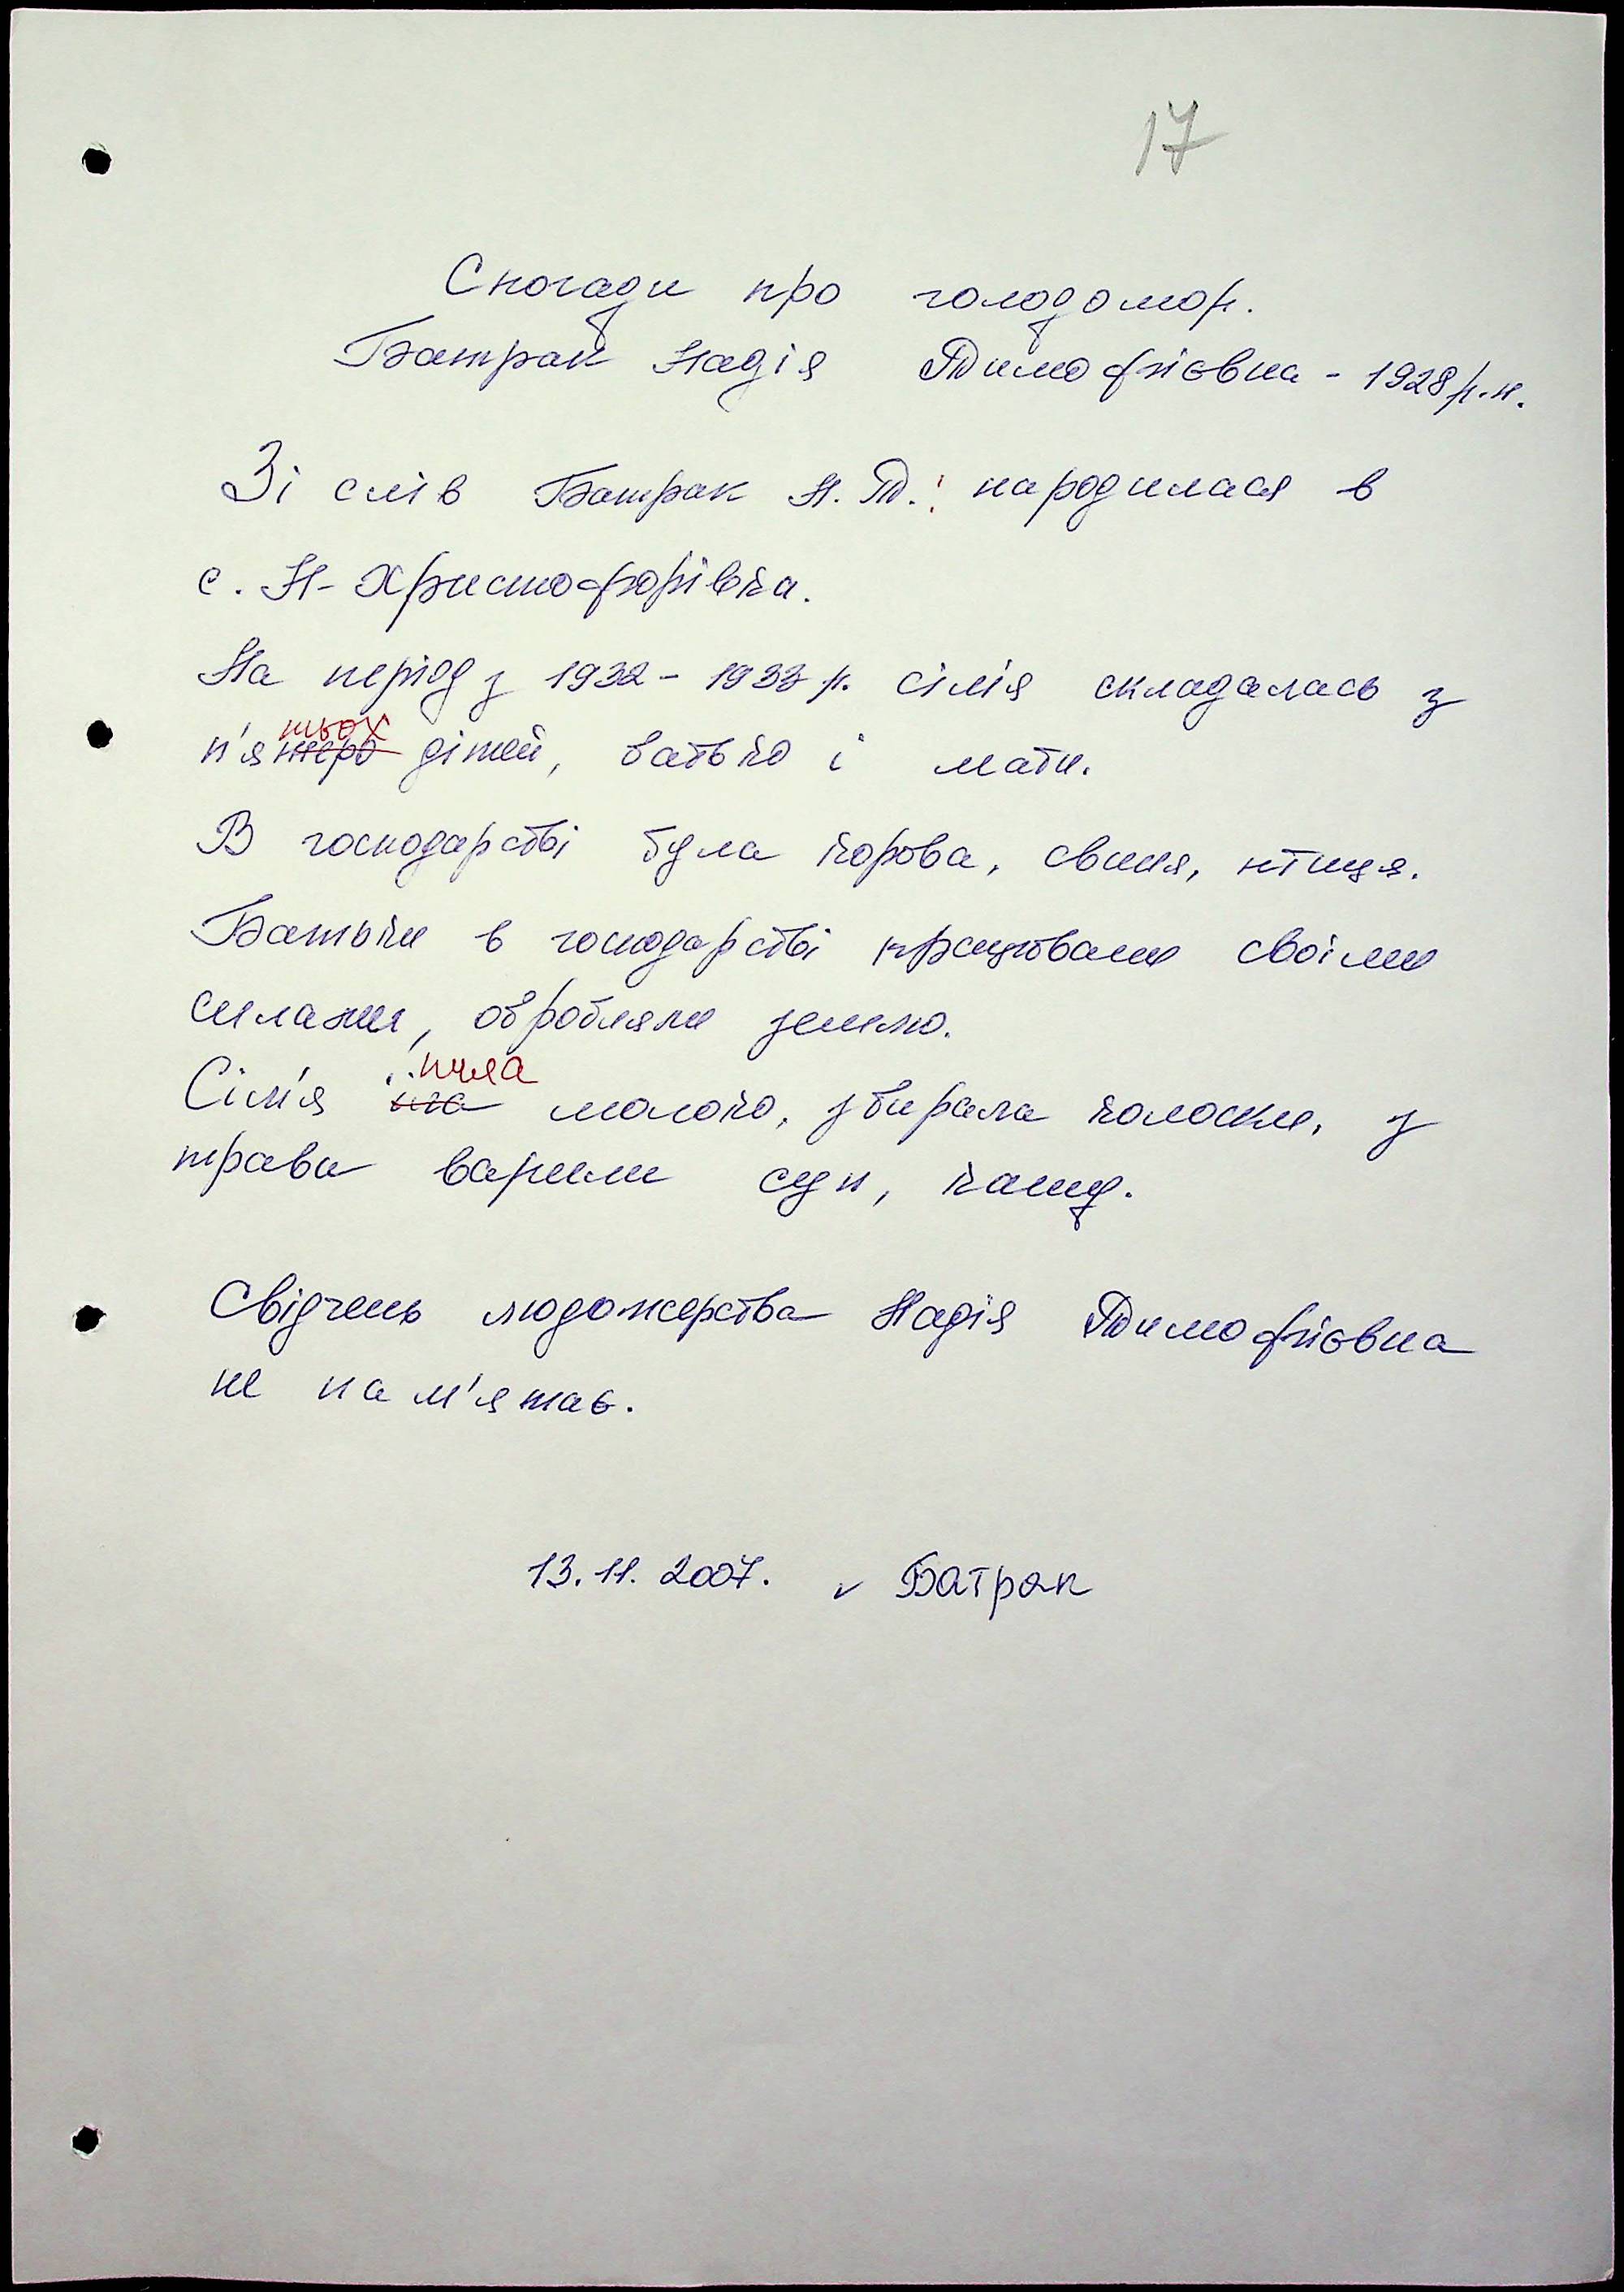 17
Спогади про голодомор.
Батрак Надія Тимофіївна - 1928 р.н.
Зі слів Батрак Н.Т.: народилася в
с. Н-Христофорівка.
На період з 1932 - 1933 р. сім'я складалась з
тьох
п'ятеро дітей, батько і мати.
В господарстві була корова, свиня, птиця.
Батьки в господарстві працювали своїми
силами, обробляли землю.
пила
Сім'я молоко, збирала колоски, з
трави варили суп, кашу.
Свідчень людожерства Надія Тимофіївна
не пам'ятає.
13.11.2007. v Батрак